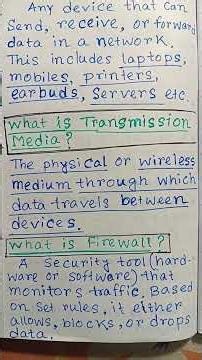 Any device that can
Send, receive, or forward
data in a network.
This includes laptops,
mobiles, printers,
earbuds, Servers etc.
What is Transmission
Media?
The physical or wireless
medium through which
data travels between
devices.
What is Firewall?
A Security tool (hard-
ware or Software) that
monitors traffic. Based
on Set rules, it either
allows, blocks, or drops
data.